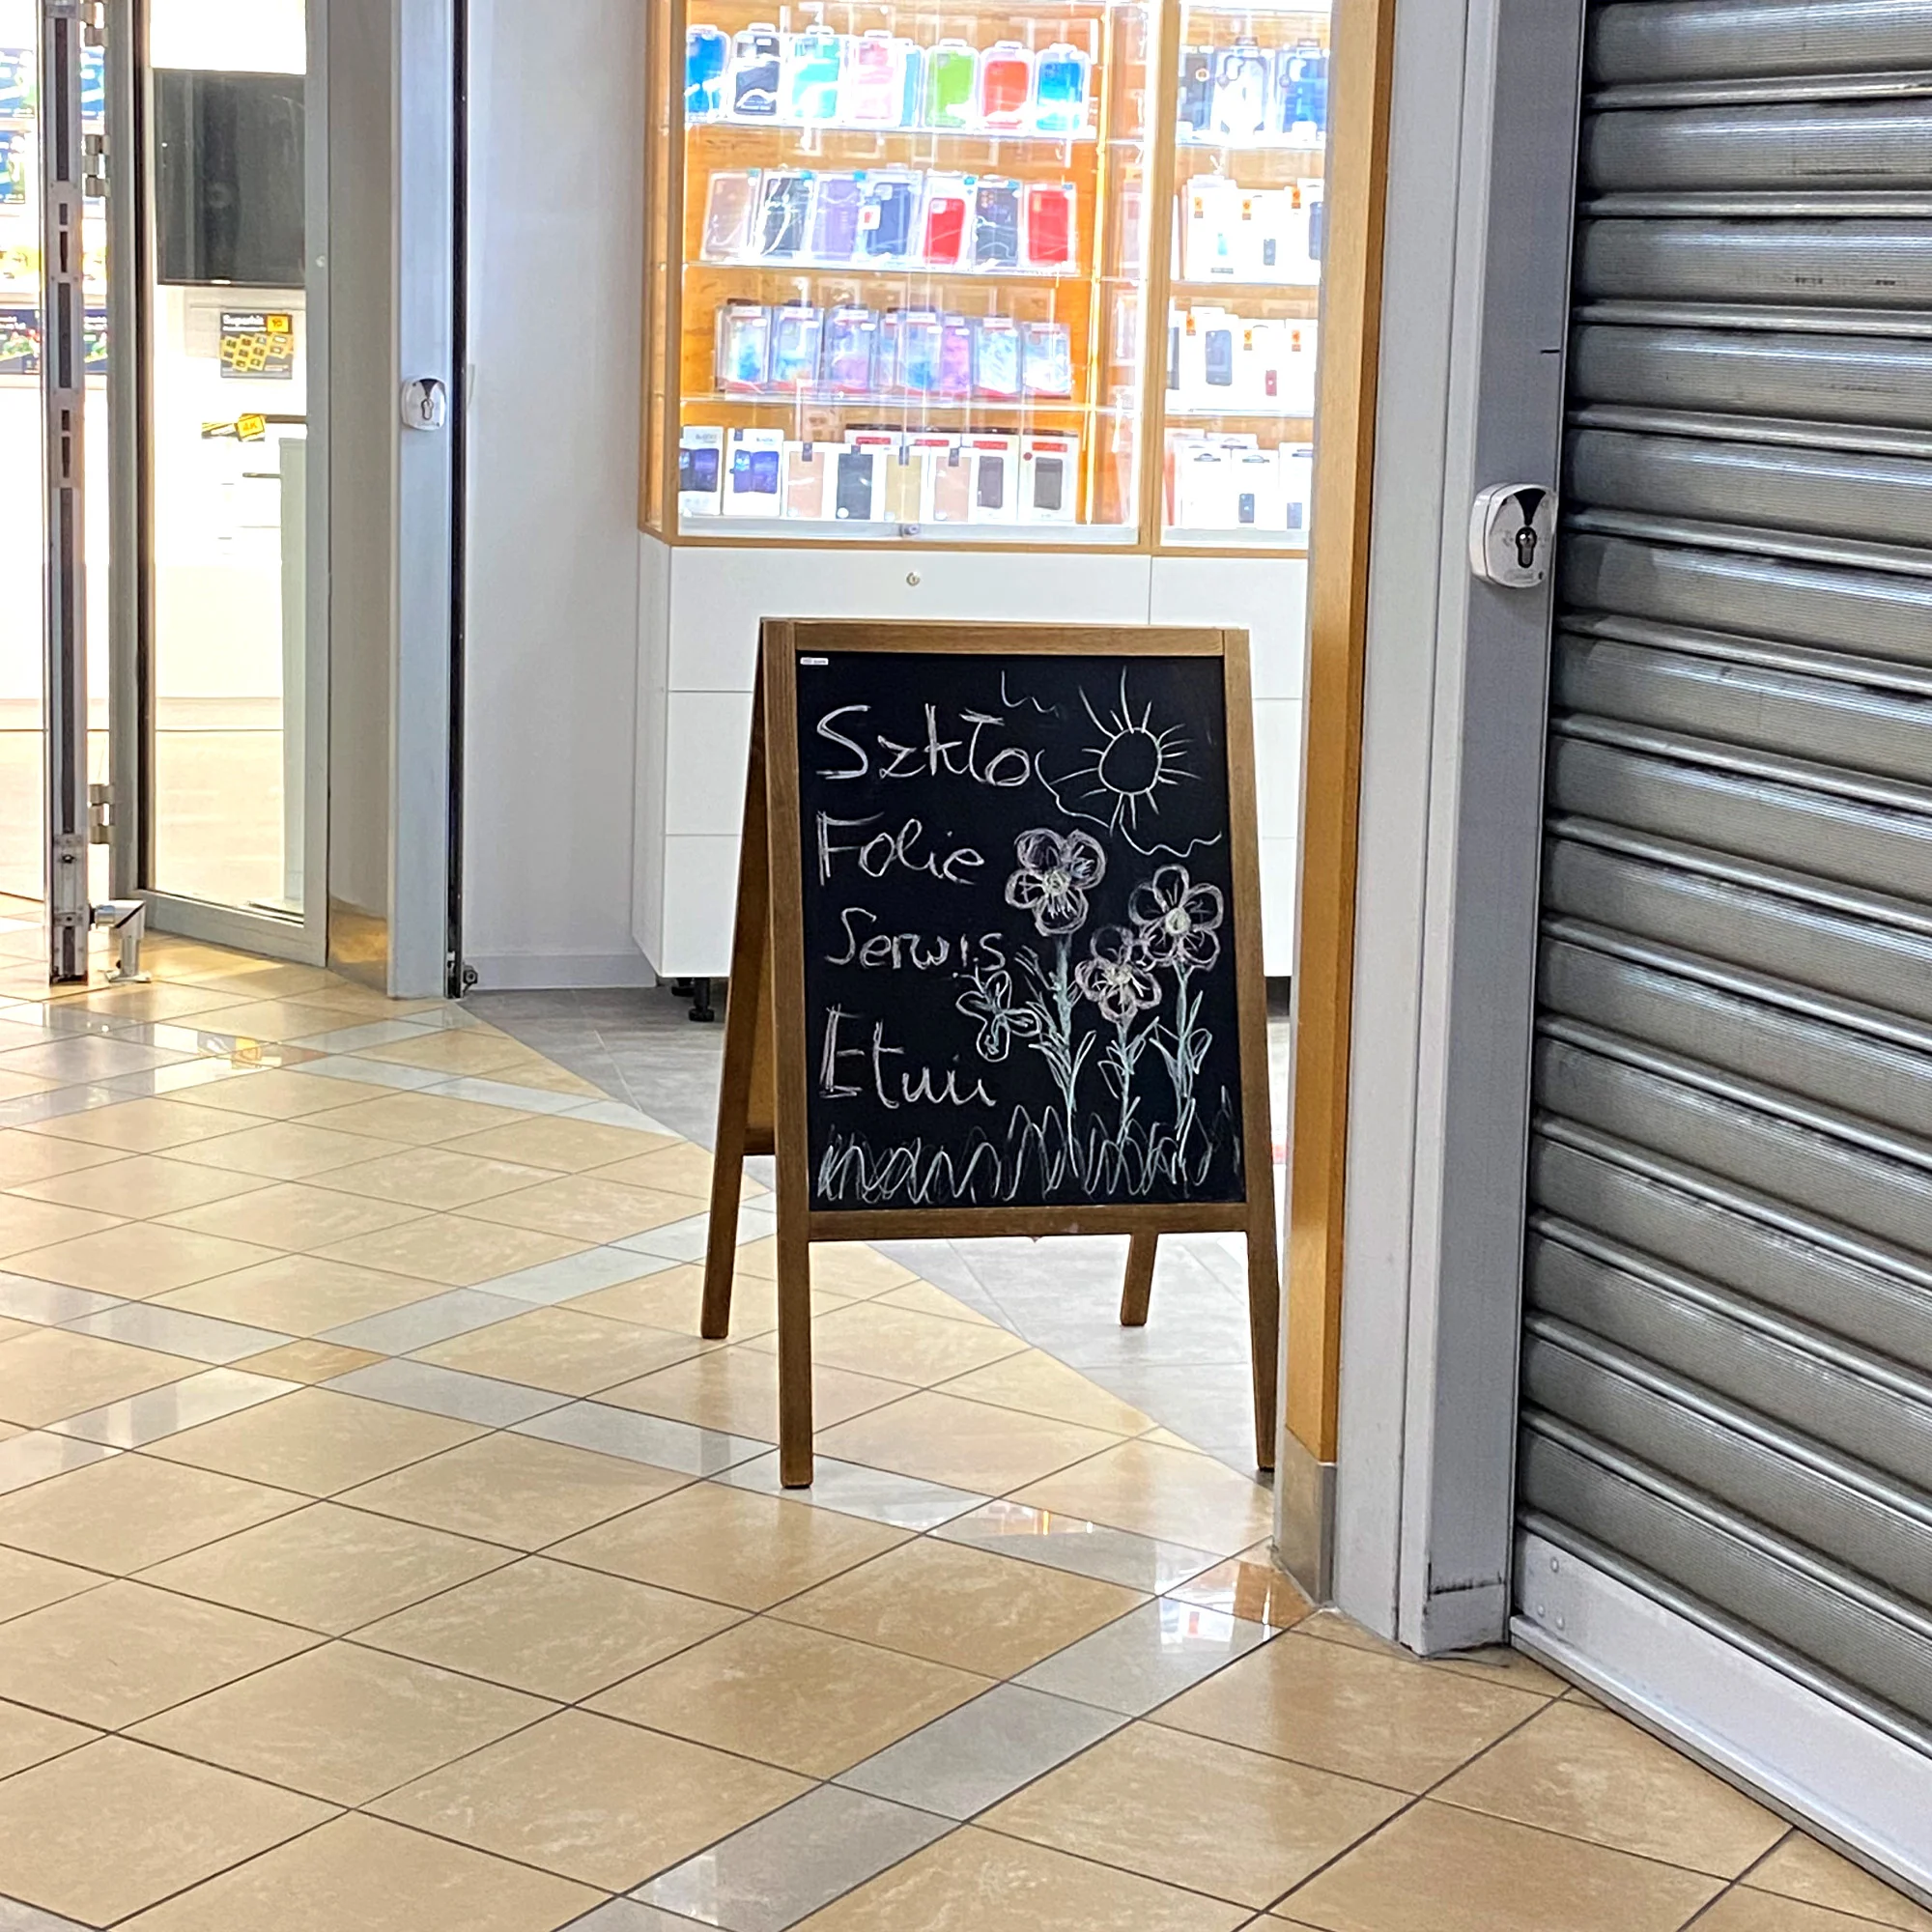 Szkło
Folie
Serwis
Etui
4K